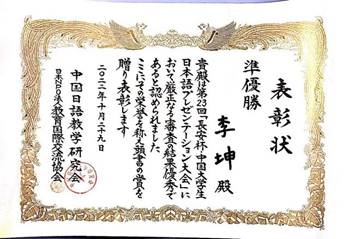 表彰状
準優勝
李坤 殿
貴殿は第23回「天安杯・中国大学生
日本語プレゼンテーション大会」に
おいて厳正なる審査の結果優秀で
あると認められました
ここにその栄誉を称え頭書の賞を
贈り表彰します
二〇二二年十月二十九日
中国日語教学研究会
教育国際交流協会